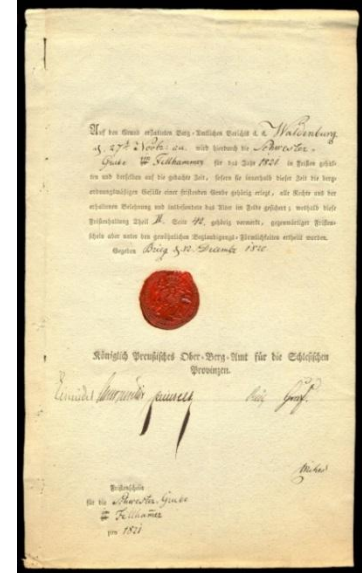 Auf den Grund erstatteten Berg-Amtlichen Berichts d. d. Waldenburg
d 27t Novbr. a.c. wird hierdurch die Schwester-
Grube zu Fellhammer für das Jahr 1821 in Fristen gehal-
ten und derselben auf die gedachte Zeit, sofern sie innerhalb dieser Zeit die berg-
ordnungsmäßigen Gefälle einer fristenden Grube gehörig erlegt, alle Rechte aus der
erhaltenen Belehnung und insbesondere das Alter im Felde gesichert; weshalb diese
Fristenhaltung Theil II. Seite 42, gehörig vermerkt, gegenwärtiger Fristen-
schein aber unter den gewöhnlichen Beglaubigungs-Förmlichkeiten ertheilt worden.
Gegeben Brieg d. 12. December 1820.
Königlich Preußisches Ober-Berg-Amt für die Schlesischen
Provinzen.
Fristenschein
für die Schwester-Grube
zu Fellhammer
pro 1821